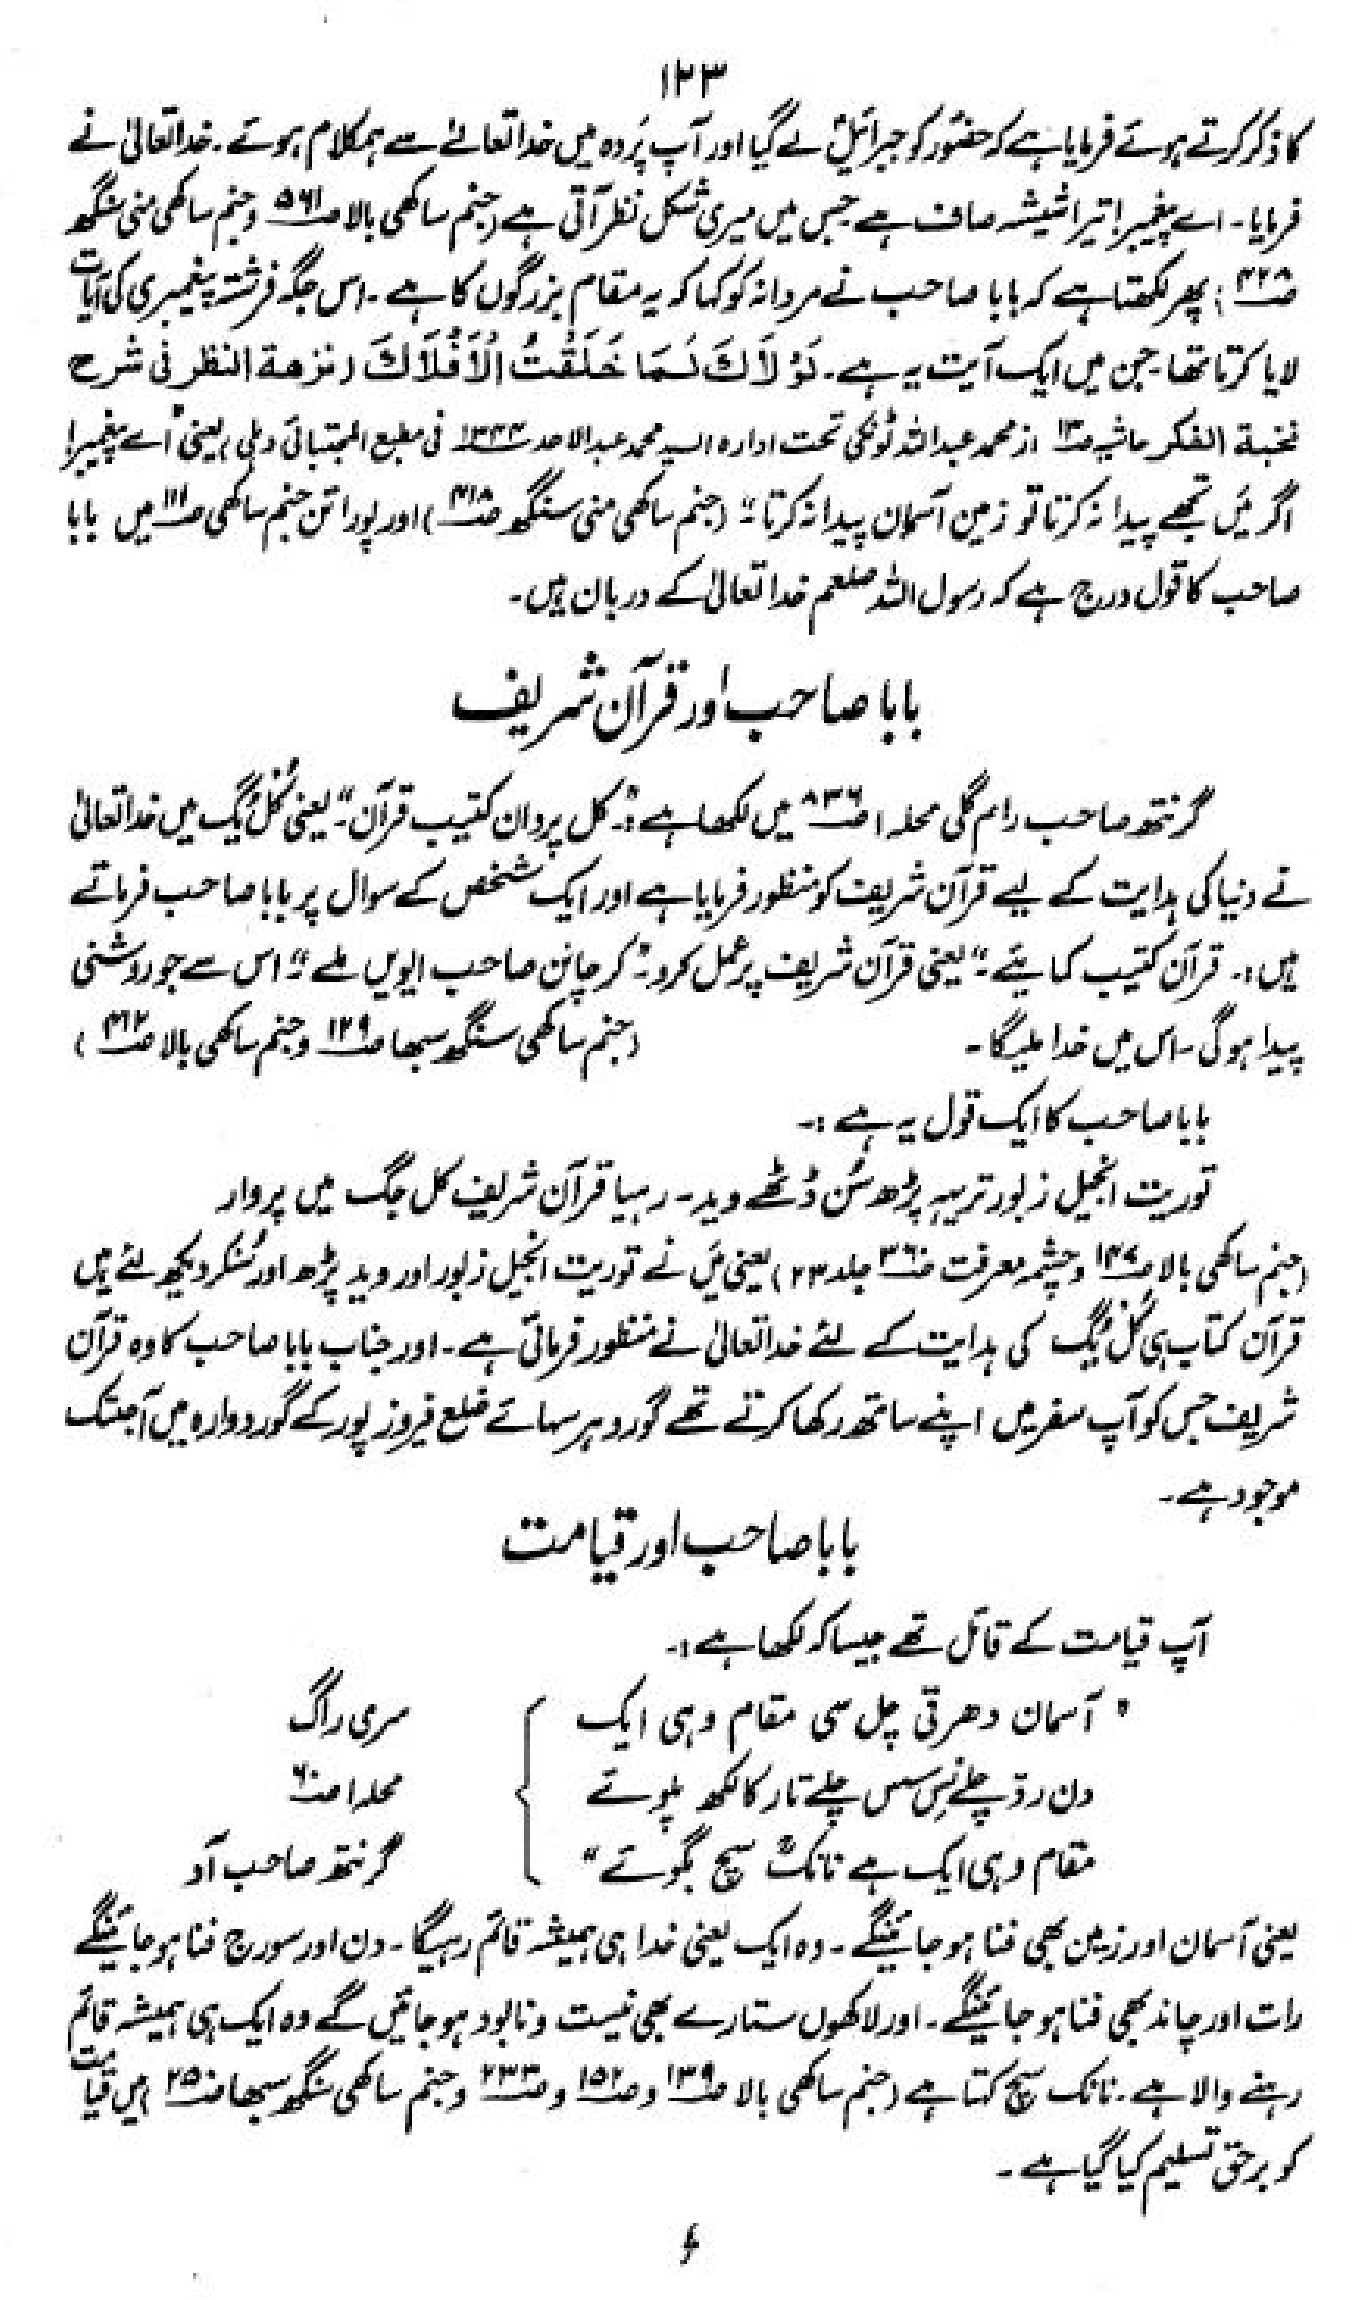 ۱۲۳
کا ذکر کرتے ہوئے فرمایا ہے کہ حضورؐ کو جبرائیلؑ لے گیا اور آپ پَردہ میں خدا تعالےٰ سے ہمکلام ہوئے۔ خدا تعالیٰ نے
فرمایا۔ اے پیغمبر! تیرا شیشہ صاف ہے جس میں میری شکل نظر آتی ہے (جنم ساکھی بالا صـ۵۶۱ و جنم ساکھی منی سنگھ
صـ۴۲۸) پھر لکھتا ہے کہ بابا صاحب نے مردانہ کو کہا کہ یہ مقام بزرگوں کا ہے۔ اس جگہ فرشتہ پیغمبری کی آیات
لایا کرتا تھا۔ جن میں ایک آیت یہ ہے۔ لَوْلَاكَ لَمَا خَلَقْتُ الْاَفْلَاكَ (نزهة النظر فی شرح
نخبة الفکر حاشیہ صـ۱۳ از محمد عبداللہ ٹونکی تحت ادارہ السید محمد عبدالاحد ۱۳۴۴ فی مطبع المجتبائی دہلی) یعنی "اے پیغمبر!
اگر میَں تجھے پیدا نہ کرتا تو زمین آسمان پیدا نہ کرتا"۔ (جنم ساکھی منی سنگھ صـ۴۱۸) اور پوراتن جنم ساکھی صـ۱۱۱ میں بابا
صاحب کا قول درج ہے کہ رسول اللہ صلعم خدا تعالیٰ کے دربان ہیں۔
بابا صاحب اور قرآن شریف
گرنتھ صاحب رام گلی محلہ ۱ صـ۸۳۶ میں لکھا ہے:۔ "کل پردان کتیب قرآن۔" یعنی کُل یُگ میں خدا تعالیٰ
نے دنیا کی ہدایت کے لیے قرآن شریف کو منظور فرمایا ہے اور ایک شخص کے سوال پر بابا صاحب فرماتے
ہیں:۔ قرآن کتیب کمایئے۔" یعنی قرآن شریف پر عمل کرو۔ "کر چانن صاحب ایویں ملے"۔ اس سے جو روشنی
پیدا ہوگی۔ اس میں خدا ملیگا۔ (جنم ساکھی سنگھ سبھا صـ۱۲۹ و جنم ساکھی بالا صـ۴۱۲)
بابا صاحب کا ایک قول یہ ہے:۔
توریت انجیل زبور تریہہ پڑھ سُن ڈٹھے وید۔ رہیا قرآن شریف کل جگ میں پروار
(جنم ساکھی بالا صـ۱۴۷ و چشمہ معرفت صـ۳۶۰ جلد ۲۳) یعنی میَں نے توریت انجیل زبور اور وید پڑھ اور سُنکر دیکھ لئے ہیں
قرآن کتاب ہی کُل یُگ کی ہدایت کے لئے خدا تعالیٰ نے منظور فرمائی ہے۔ اور جناب بابا صاحب کا وہ قرآن
شریف جس کو آپ سفر میں اپنے ساتھ رکھا کرتے تھے گورو ہر سہائے ضلع فیروز پور کے گوردوارہ میں آجتک
موجود ہے۔
بابا صاحب اور قیامت
آپ قیامت کے قائل تھے جیسا کہ لکھا ہے:۔
"آسمان دھرتی چل سی مقام وہی ایک } سری راگ
دن ردّ چلے نِس سس چلے تار کا لکھ پلوئے محلہ ۱ صـ۶۰
مقام وہی ایک ہے نانکؒ سچ بگوئے" گرنتھ صاحب آد
یعنی آسمان اور زمین بھی فنا ہو جائینگے۔ وہ ایک یعنی خدا ہی ہمیشہ قائم رہیگا۔ دن اور سورج فنا ہو جائینگے
رات اور چاند بھی فنا ہو جائینگے۔ اور لاکھوں ستارے بھی نیست و نابود ہو جائیں گے وہ ایک ہی ہمیشہ قائم
رہنے والا ہے۔ نانک سچ کہتا ہے (جنم ساکھی بالا صـ۱۳۹ و صـ۱۵۲ و صـ۲۳۳ و جنم ساکھی سنگھ سبھا صـ۲۵۰) میں قیامت
کو برحق تسلیم کیا گیا ہے۔